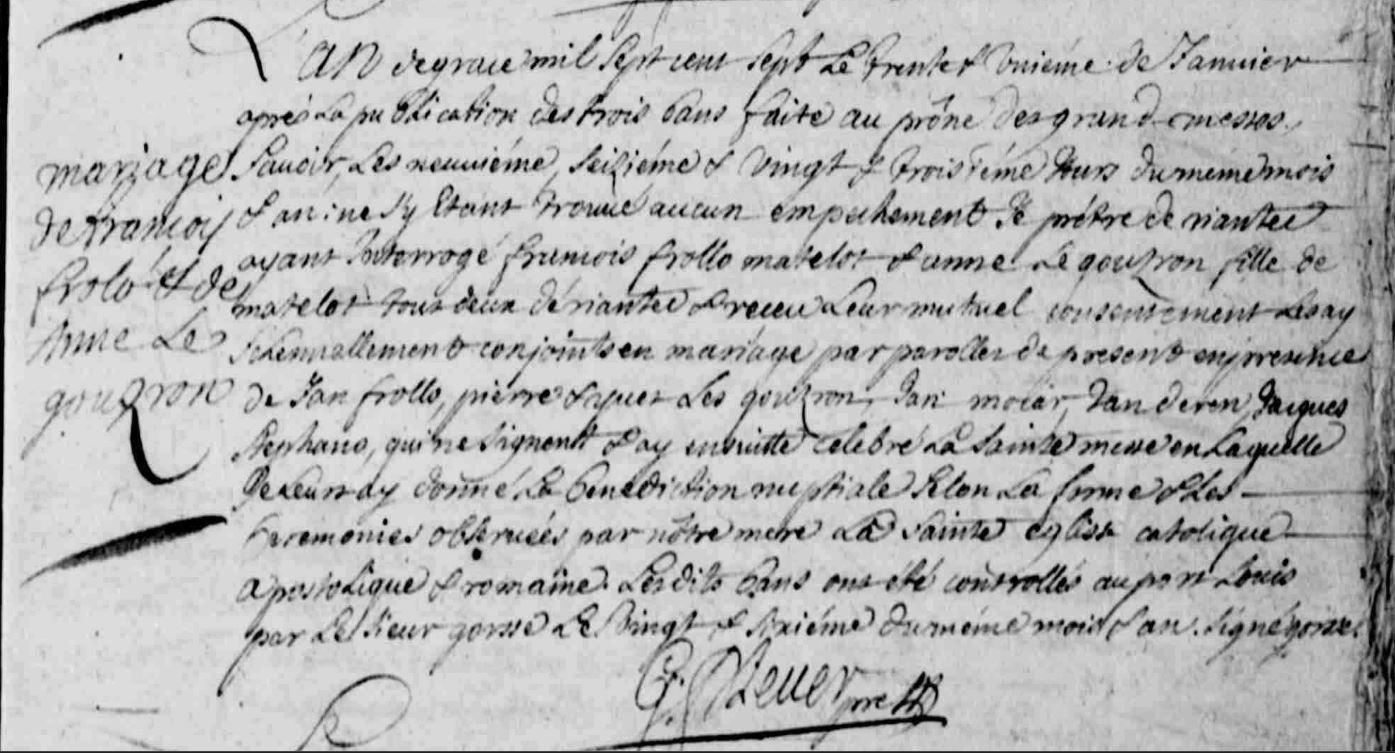 L'AN de grace mil sept cent sept Le trente & Unième de Janvier
après La publication des trois bans faite au prône des grand-messes,
mariage
Sauoir, Les neuuiéme, seiziéme & vingt & troisiéme Jours du méme mois
de francois
& an: ne s'y Etant trouué aucun empechement Je prétre de riantec
ayant Interrogé francois frollo matelot & anne Le gouzron fille de
frolo & de
matelot tout deux de riantec & receu Leur mutuel consentement Les ay
Anne Le
solennellement conjoints en mariage par parolles de present en presence
gouzron
de Jan frollo, pierre & Les gouzron, Jan mocar, Jan deren, Jacques
Stephano, qui ne signent & ay ensuitte célébré La sainte messe en Laquelle
Je Leurs ay donné La benediction nuptiale selon La forme & Les
Ceremonies obseruées par nôtre mere La Sainte eglise catolique
apostolique & romaine. Lesdits bans ont été controllés au port Louis
par Le sieur gorsse Le Vingt & sixiéme du méme mois & an. signé gorsse.
pre